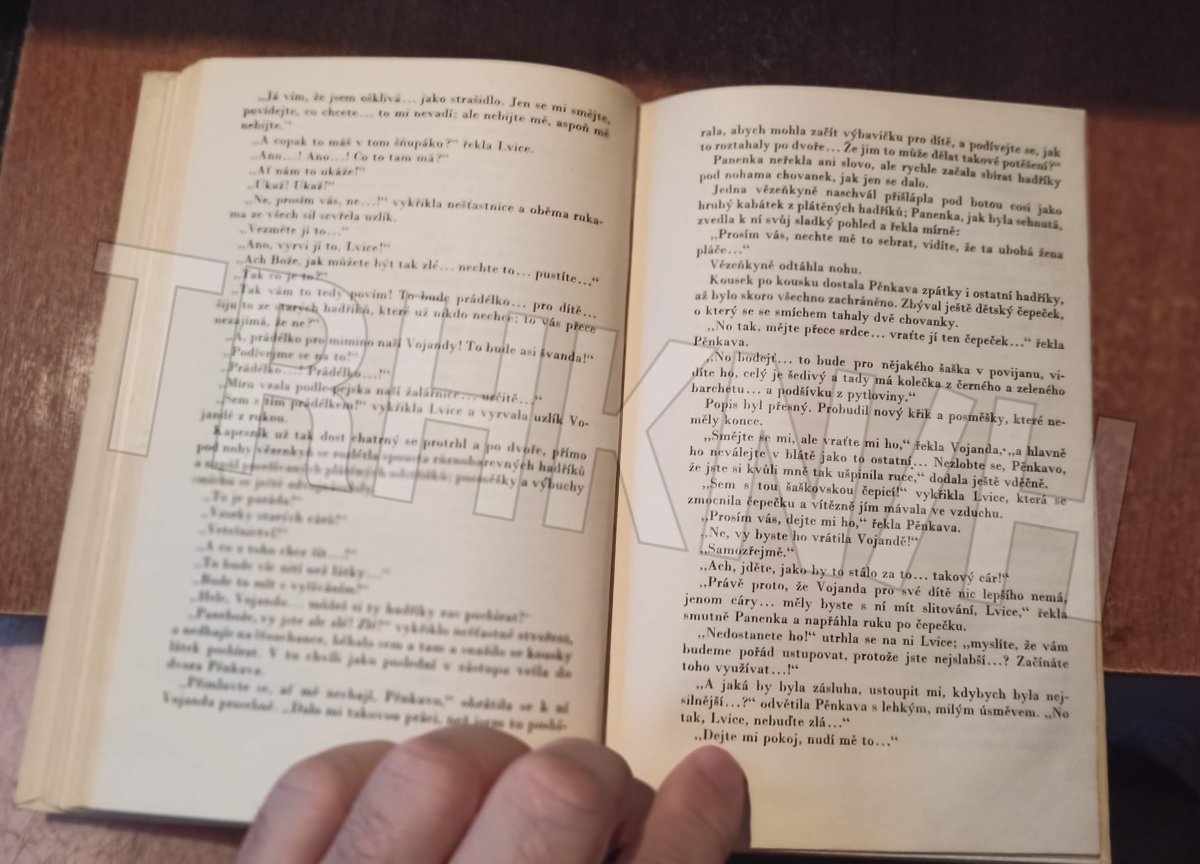 „Já vím, že jsem ošklivá... jako strašidlo. Jen se mi smějte,
povídejte, co chcete... to mi nevadí; ale nebijte mě, aspoň mě
nebijte.“
„A copak to máš v tom šňupáku?“ řekla Lvice.
„Ano...! Ano...! Co to tam má?“
„Ať nám to ukáže!“
„Ukaž! Ukaž!“
„Ne, prosím vás, ne...!“ vykřikla nešťastnice a oběma ruka-
ma ze všech sil sevřela uzlík.
„Vezměte jí to...“
„Ano, vyrvi jí to, Lvice!“
„Ach Bože, jak můžete být tak zlé... nechte to... pustíte...“
„Tak co je to?“
„Tak vám to tedy povím! To bude prádélko... pro dítě...
šiju to ze starých hadříků, které už nikdo nechce; to vás přece
nezajímá, že ne?“
„A, prádélko pro mimino naší Vojandy! To bude asi švanda!“
„Podívejme se na to!“
„Prádélko...! Prádélko...!“
„Míru vzala podle pejska naší žalářnice... určitě...“
„Sem s tím prádélkem!“ vykřikla Lvice a vyrvala uzlík Vo-
jandě z rukou.
Kapesník už tak dost chatrný se protrhl a po dvoře, přímo
pod nohy vězenkyň se rozlétla spousta různobarevných hadříků
a posměšky a výbuchy
smíchu se ještě
„To je paráda!“
„A co z toho chce šít...!“
„To bude víc nití než látky...“
„Bude to mít s vyšíváním!“
„Hele, Vojando... můžeš si ty hadříky zas posbírat!“
„Panebože, vy jste ale zlé! Zlé!“ vykřiklo nešťastné stvoření,
a nedbajíc na šťouchance, běhalo sem a tam a snažilo se kousky
látek posbírat. V tu chvíli jako poslední v zástupu vešla do
dvora Pěnkava.
„Přimluvte se, ať mě nechají, Pěnkavo,“ obrátila se k ní
Vojanda prosebně. „Dalo mi takovou práci, než jsem to posbí-
rala, abych mohla začít výbavičku pro dítě, a podívejte se, jak
to roztahaly po dvoře... Že jim to může dělat takové potěšení?“
Panenka neřekla ani slovo, ale rychle začala sbírat hadříky
pod nohama chovanek, jak jen se dalo.
Jedna vězeňkyně naschvál přišlápla pod botou cosi jako
hrubý kabátek z plátěných hadříků; Panenka, jak byla sehnutá,
zvedla k ní svůj sladký pohled a řekla mírně:
„Prosím vás, nechte mě to sebrat, vidíte, že ta ubohá žena
pláče...“
Vězeňkyně odtáhla nohu.
Kousek po kousku dostala Pěnkava zpátky i ostatní hadříky,
až bylo skoro všechno zachráněno. Zbýval ještě dětský čepeček,
o který se se smíchem tahaly dvě chovanky.
„No tak, mějte přece srdce... vraťte jí ten čepeček...“ řekla
Pěnkava.
„No bodejť... to bude pro nějakého šaška v povijanu, vi-
díte ho, celý je šedivý a tady má kolečka z černého a zeleného
barchetu... a podšívku z pytloviny.“
Popis byl přesný. Probudil nový křik a posměšky, které ne-
měly konce.
„Smějte se mi, ale vraťte mi ho,“ řekla Vojanda, „a hlavně
ho neválejte v blátě jako to ostatní... Nezlobte se, Pěnkavo,
že jste si kvůli mně tak ušpinila ruce,“ dodala ještě vděčně.
„Sem s tou šaškovskou čepicí!“ vykřikla Lvice, která se
zmocnila čepečku a vítězně jím mávala ve vzduchu.
„Prosím vás, dejte mi ho,“ řekla Pěnkava.
„Ne, vy byste ho vrátila Vojandě!“
„Samozřejmě.“
„Ach, jděte, jako by to stálo za to... takový cár!“
„Právě proto, že Vojanda pro své dítě nic lepšího nemá,
jenom cáry... měly byste s ní mít slitování, Lvice,“ řekla
smutně Panenka a napřáhla ruku po čepečku.
„Nedostanete ho!“ utrhla se na ni Lvice; „myslíte, že vám
budeme pořád ustupovat, protože jste nejslabší...? Začínáte
toho využívat...!“
„A jaká by byla zásluha, ustoupit mi, kdybych byla nej-
silnější...?“ odvětila Pěnkava s lehkým, milým úsměvem. „No
tak, Lvice, nebuďte zlá...“
„Dejte mi pokoj, nudí mě to...“
TRHKNIH